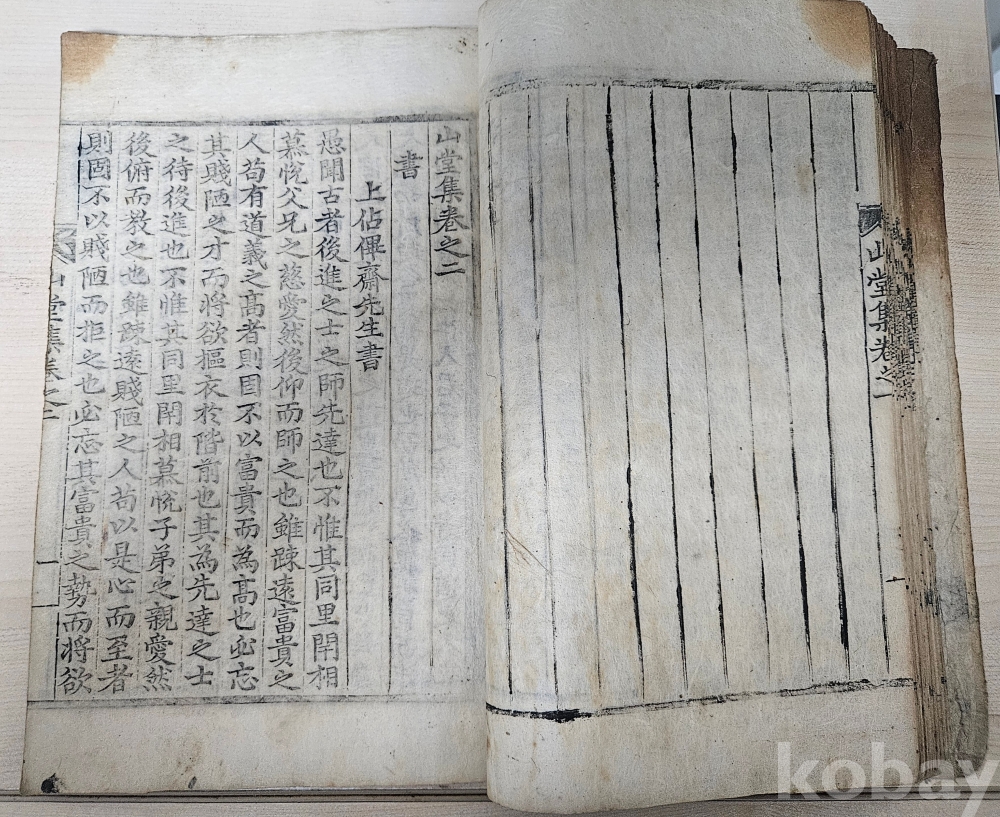 山堂集卷之一
山堂集卷之二
書
上佔畢齋先生書
愚聞古者後進之士之師先達也不惟其同里閈相
慕悅父兄之慈愛然後仰而師之也雖踈遠富貴之
人苟有道義之高者則固不以富貴而為高也必忘
其賤陋之才而將欲摳衣於階前也其為先達之士
之待後進也不惟其同里閈相慕悅子弟之親愛然
後俯而教之也雖踈遠賤陋之人苟以是心而至者
則固不以賤陋而拒之也必忘其富貴之勢而將欲
山堂集卷之二
一
kobay